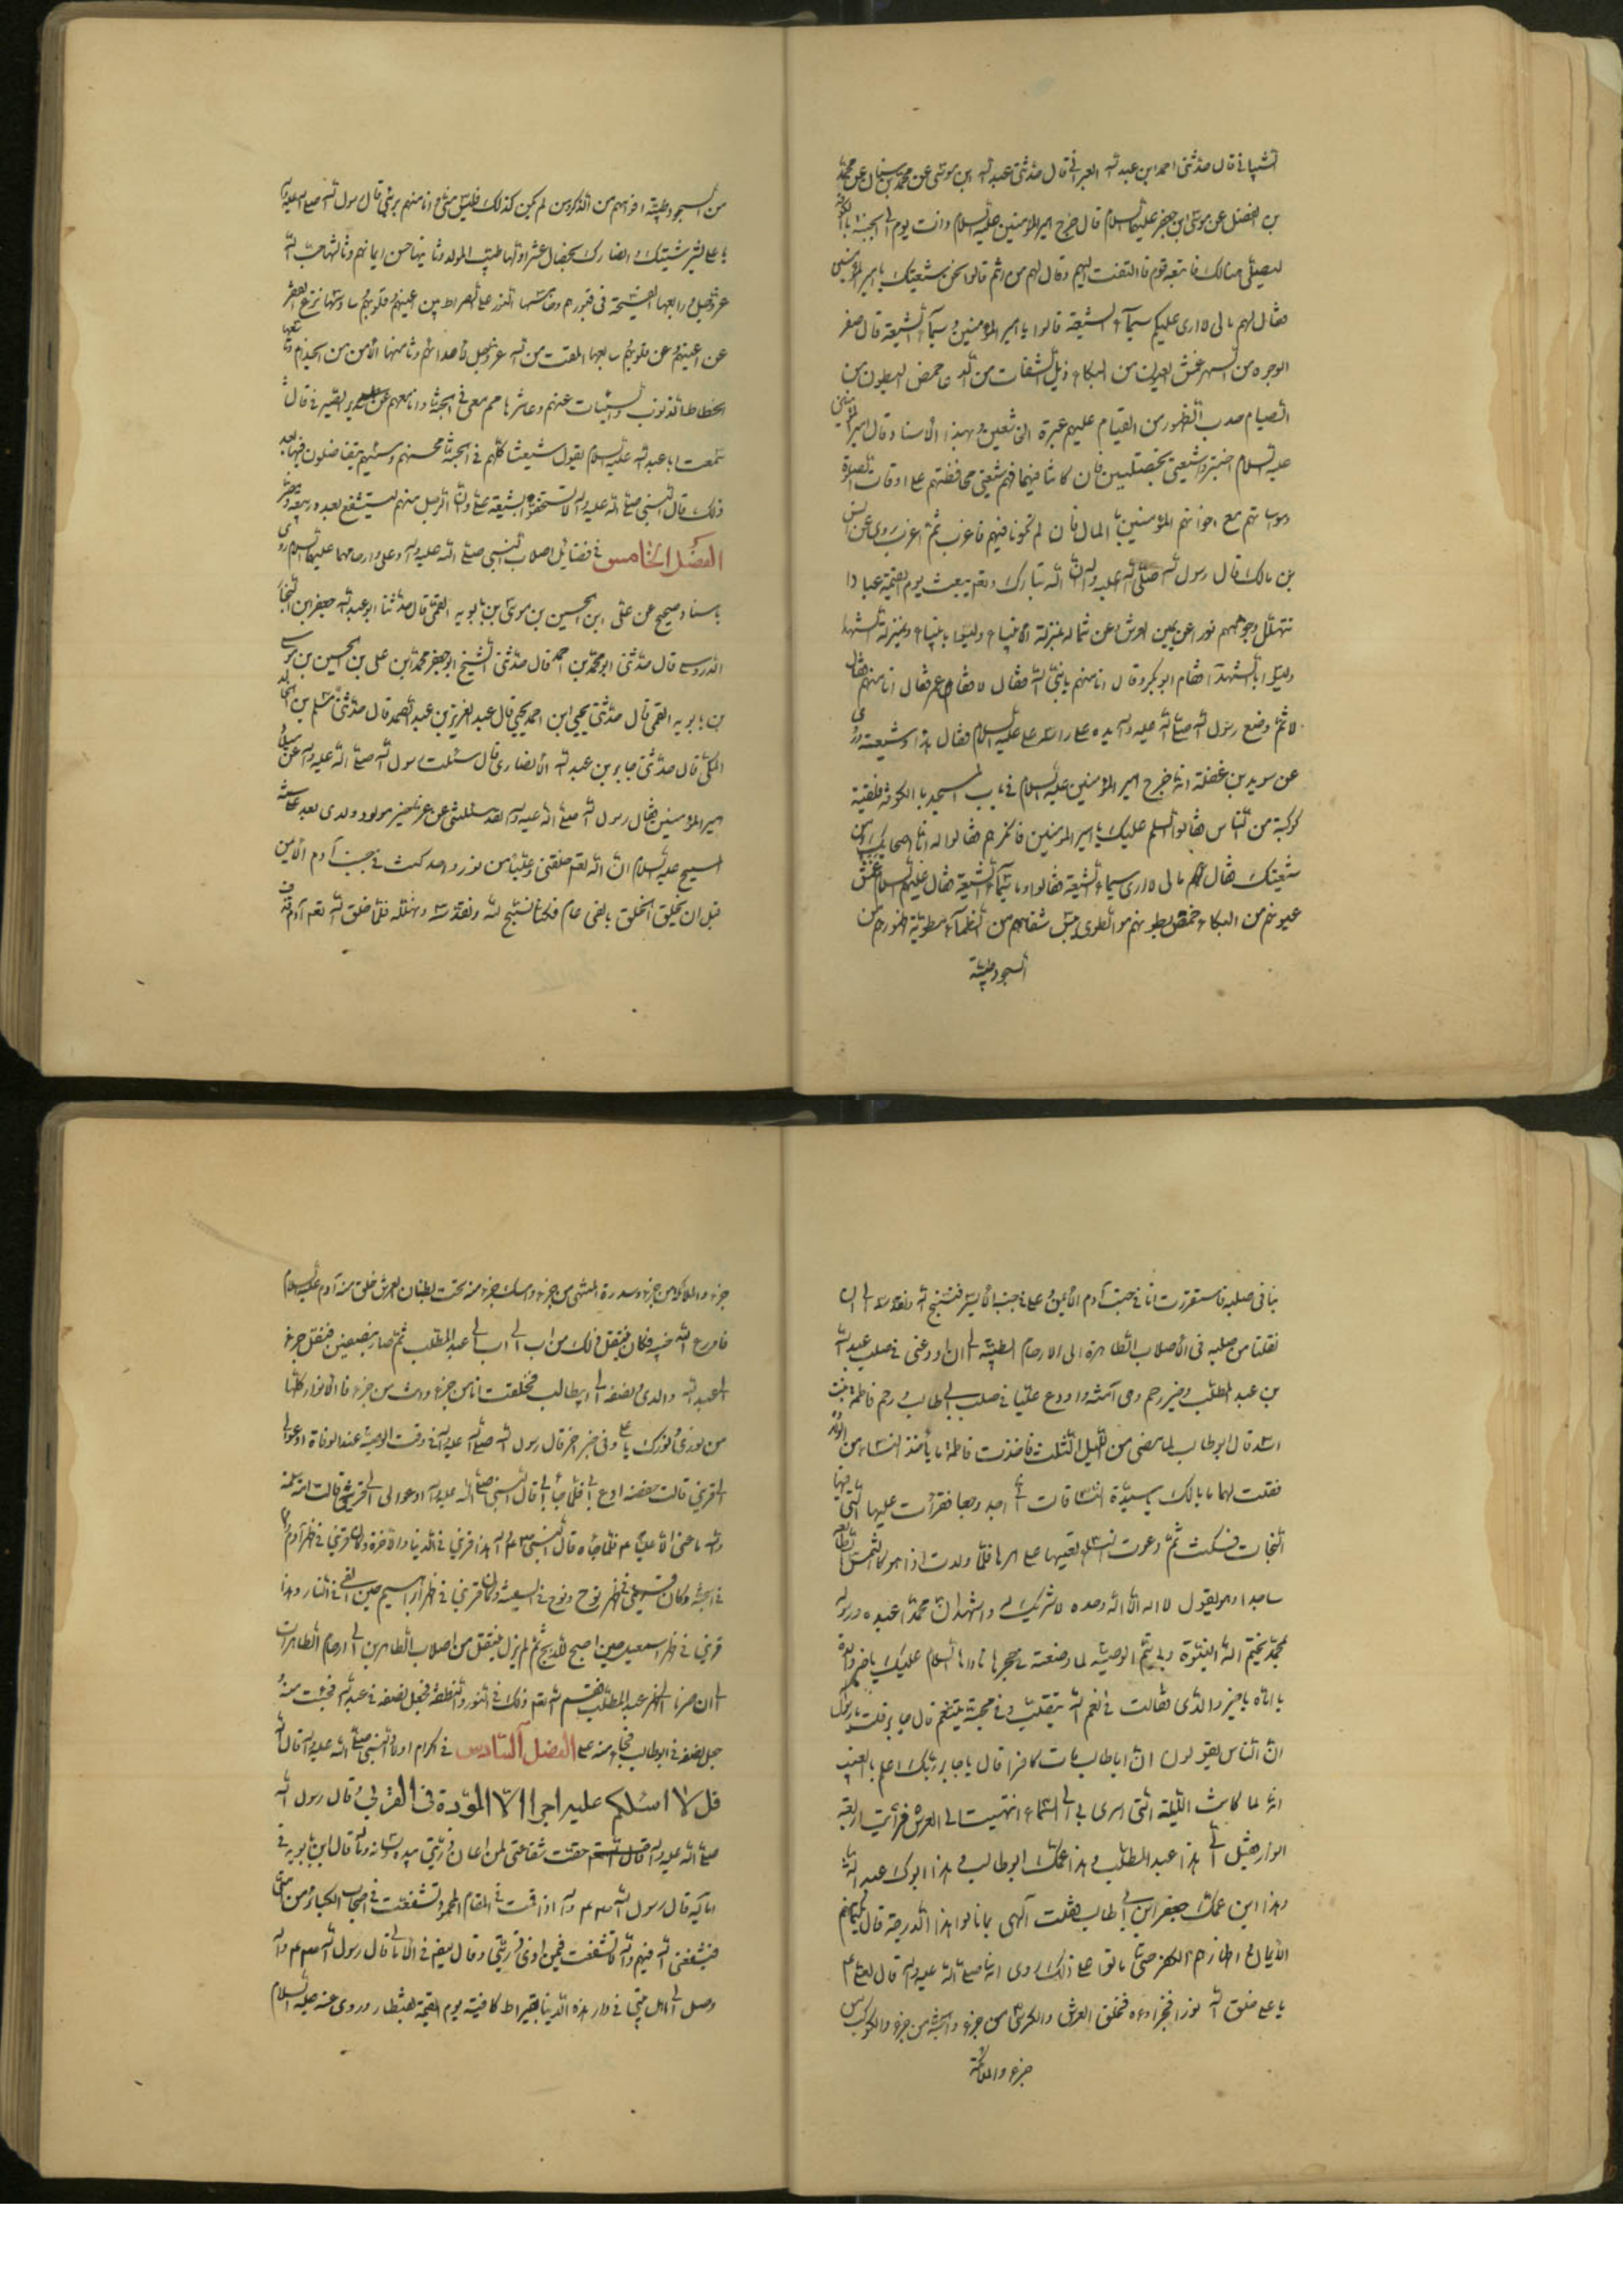 الشيباني قال حدثني احمد ابن عبد الله العبراني قال حدثني عبد الله ابن موسى عن محمد بن سنان عن محمد
بن الفضل عن موسى ابن جعفر عليهما السلام قال خرج امير المؤمنين عليه السلام ذات يوم الى الجبة بالكوفة
ليصلي هنالك فاتبعه قوم فالتفت اليهم وقال لهم من انتم قالوا نحن شيعتك يا امير المؤمنين
فقال لهم مالي لا ارى عليكم سيماء الشيعة قالوا يا امير المؤمنين وما سيماء الشيعة قال صفر
الوجوه من السهر عمش العيون من البكاء ذبل الشفاه من الدعا خمص البطون من
الصيام حدب الظهور من القيام عليهم غبرة الخاشعين وبهذا الاسناد وقال امير المؤمنين
عليه السلام اختبروا شيعتي بخصلتين فان كانتا فيهم فهم شيعتي محافظتهم على اوقات الصلوة
ومواساتهم مع اخوانهم المؤمنين بالمال فان لم تكونا فيهم فاعزب ثم اعزب روى عن انس
بن مالك قال رسول الله صلى الله عليه واله ان الله تبارك وتعالى يبعث يوم القيمة عبادا
تتهلل وجوههم نورا عن يمين العرش وعن شماله بمنزلة الانبياء وليسوا بانبياء وبمنزلة الشهداء
وليسوا بالشهداء فقام ابو بكر وقال انا منهم يا نبي الله فقال لا فقام عمر فقال انا منهم فقال
لا ثم وضع رسول الله صلى الله عليه واله يده على راس علي عليه السلام فقال هذا وشيعته وروى
عن سويد بن غفلة انه خرج امير المؤمنين عليه السلام في باب المسجد بالكوفة فلقيه
كوكبة من الناس فقالوا السلم عليك يا امير المؤمنين فانكرهم فقالوا له انا اصحابك ومن
شيعتك فقال لهم مالي لا ارى سيماء الشيعة فقالوا وما سيماء الشيعة فقال عليه السلام عمش
عيونهم من البكاء خمص بطونهم من الطوى يبس شفاههم من الظماء مطوية ظهورهم من
السجود طيبة
من السجود طيبة افواههم من الذكر ومن لم يكن كذلك فليس مني وانا منهم بريء قال رسول الله صلى الله عليه واله
يا علي بشر شيعتك وانصارك بخصال عشر اولها طيب المولد وثانيها حسن ايمانهم وثالثها حب الله
عز وجل ورابعها الفسحة في قبورهم وخامسها النور على الصراط بين اعينهم وسادسها نزع الفقر
عن اعينهم وعن قلوبهم سابعها المقت من الله عز وجل لاعدائهم وثامنها الامن من الجذام وتاسعها
انحطاط الذنوب والسيئات عنهم وعاشرها هم معي في الجنة وانا معهم عن سدير الصيرفي قال
سمعت ابا عبد الله عليه السلام يقول شيعتنا كلهم في الجنة محسنهم ومسيئهم يتفاضلون فيها بعد
ذلك قال النبي صلى الله عليه واله لا تستخفوا بشيعة علي وان الرجل منهم ليشفع بعدد ربيعة ومضر
الفصل الخامس في فضايل اصلاب النبي صلى الله عليه واله وعلي وارحامهما عليهما السلام روى
باسناد صحيح عن علي ابن الحسين بن موسى بن بابويه القمي قال حدثنا ابو عبد الله جعفر ابن النجار
الدروسي قال حدثني ابو محمد بن احمد قال حدثني الشيخ ابو جعفر محمد ابن علي بن الحسين بن موسى
بن بابويه القمي قال حدثني يحيى ابن احمد يحيى قال عبد العزيز بن عبد الصمد قال حدثني مسلم بن خالد
المكي قال حدثني جابر بن عبد الله الانصاري قال سئلت رسول الله صلى الله عليه واله عن ميلاد
امير المؤمنين فقال رسول الله صلى الله عليه واله لقد سئلتني عن خير مولود ولدي بعد
المسيح عليه السلام ان الله تعالى خلقني وعليا من نور واحد كنت في جنب آدم الايمن
قبل ان يخلق الخلق بالفي عام فكنا نسبح الله ونقدسه ونهلله فلما خلق الله تعالى آدم قذف
بنا في صلبه فاستقررت انا في جنب آدم الايمن وعلي في جنب الايسر فنسبح الله ونقدسه الى ان
نقلنا من صلبه في الاصلاب الطاهرة الى الارحام الطيبة الى ان اودعني في صلب عبد الله
بن عبد المطلب وخير رحم وهي آمنة واودع عليا في صلب ابي طالب ورحم فاطمة بنت
اسد قال ابو طالب لما مضى من الليل الثلث فاخذت فاطمة ما يأخذ النساء من الولادة
فقلت لها ما بالك يا سيدة النساء قالت اني اجد وجعا فقرأت عليها التي فيها
النجات فسكنت ثم دعوت النساء يعينها على امرها فلما ولدت اذا هو كالشمس الطالعة
ساجدا وهو يقول لا اله الا الله وحده لا شريك له واشهد ان محمدا عبده ورسوله
بمحمد يختم الله النبوة وبي يتم الوصية لما وضعته في حجرها ناداها السلام عليك يا خير والدة
يا اماه ما خبر والدي فقالت في نعم الله يتقلب وفي محبته يتنعم قال جابر فقلت يا رسول
ان الناس يقولون ان ابا طالب مات كافرا قال يا جابر ربك اعلم بالغيب
انه لما كانت الليلة التي اسرى بي الى السماء انتهيت الى العرش فرأيت اربعة
انوار فقيل لي هذا عبد المطلب وهذا عمك ابو طالب وهذا ابوك عبد الله
وهذا ابن عمك جعفر ابن ابي طالب فقلت آلهي بما نالوا هذه الدرجة قال بكتمانهم
الايمان واظهارهم الكفر حتى ماتوا على ذلك روى انه صلى الله عليه واله قال لعلي
يا علي خلق الله نورا فجزاه فخلق العرش والكرسي من جزء والجنة من جزء والكواكب من
جزء والملائكة
جزء والملائكة من جزء وسدرة المنتهى من جزء وامسك جزء منه تحت بطنان العرش خلق منه آدم عليه السلام
فاودع الله فيه فكان ينتقل ذلك من اب الى اب الى عبد المطلب ثم صار نصفين فنقل جزء
الى عبد الله والدي ونصفه الى ابيطالب فخلقت انا من جزء وانت من جزء فالانوار كلها
من نوري ونورك يا علي وفي خبر اخر قال رسول الله صلى الله عليه واله في وقت الوصية عند الوفاة ادعو لي
قريني قالت حفصة ادع لي فلما جاء الي قال النبي صلى الله عليه واله ادعوا لي الى قريني قالت ام سلمة
والله ما عنى الا عليا فلما جاءه قال النبي هذا قريني في الدنيا والاخرة وكان قريني في ظهر آدم
في الجنة وكان قريني في ظهر نوح ونوح في السفينة وكان قريني في ظهر ابراهيم حين القى في النار وهذا
قريني في ظهر اسمعيل حين اضجع للذبح ثم لم يزل ينتقل من اصلاب الطاهرين الى ارحام الطاهرات
الى ان صرنا الى ظهر عبد المطلب فقسم الله تعالى ذلك في النور والنطفة فجعل نصفه في عبد الله فجئت منه
جعل نصفه في ابو طالب فجاء منه علي الفصل السادس في اكرام اولاد النبي صلى الله عليه واله قال الله
قل لا اسئلكم عليه اجرا الا المودة في القربى وقال رسول الله
صلى الله عليه واله حقت شفاعتي لمن اعان ذريتي بيده ولسانه وماله قال ابن بابويه في
اماليه قال رسول الله واله اذا قمت في المقام المحمود تشفعت في اصحاب الكبائر من امتي
فيشفعني الله فيهم والله لا تشفعت فيمن اذى ذريتي وقال ايضا في الامالي قال رسول الله واله
وصل الى اهل بيتي في دار هذه الدنيا بقيراط كافيته يوم القيمة بقنطار وروى عنه عليه السلام